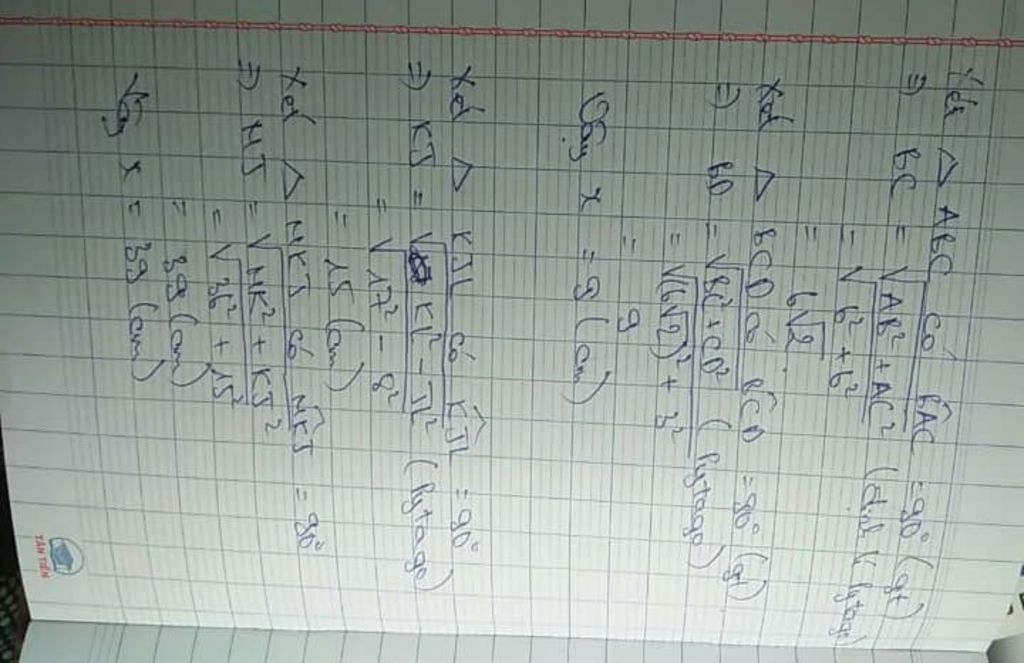 Xét △ ABC có BÂC = 90° (gt)
⇒ BC = √AB² + AC² (định lí Pytago)
= √6² + 6²
= 6√2
Xét △ BCD có BĈD = 90° (gt)
⇒ BD = √BC² + CD² (Pytago)
= √(6√2)² + 3²
= 9
Vậy x = 9 (cm)
Xét △ KJL có KĴL = 90°
⇒ KJ = √KL² - JL² (Pytago)
= √17² - 8²
= 15 (cm)
Xét △ HKJ có HK̂J = 90°
⇒ HJ = √HK² + KJ²
= √36² + 15²
= 39 (cm)
Vậy x = 39 (cm)
TÂN TIẾN